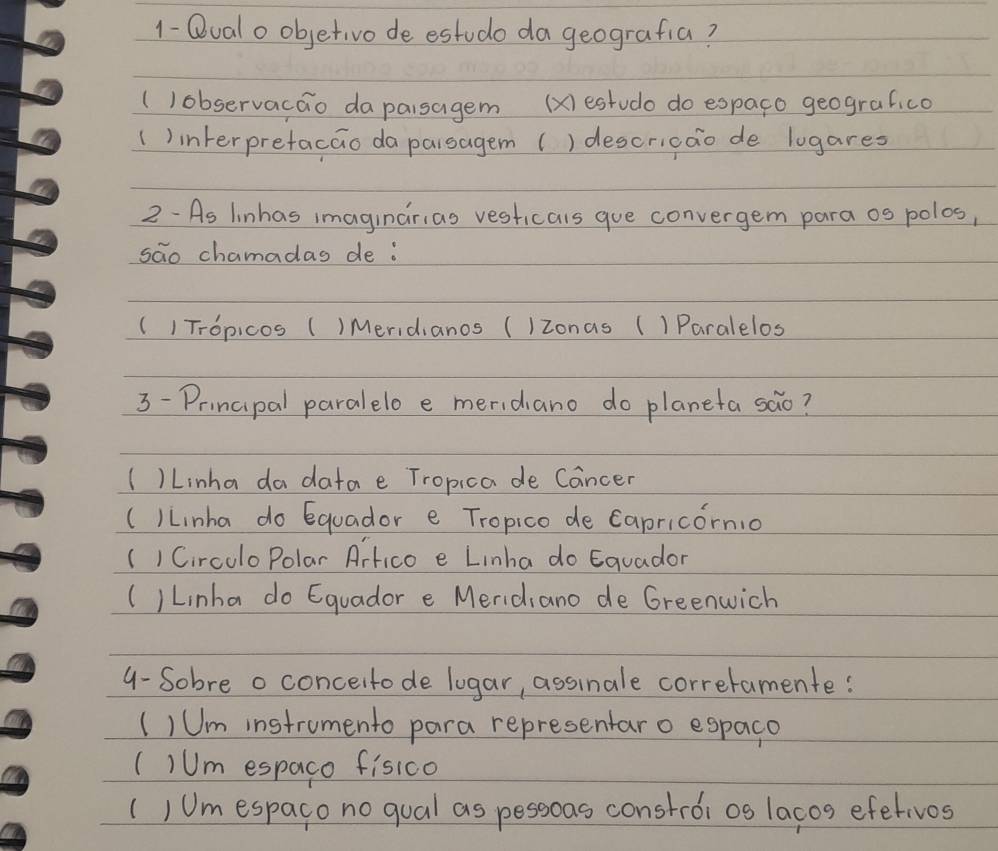 1- Qual o objetivo de estudo da geografia?
( ) observação da paisagem (x) estudo do espaço geográfico
( ) interpretação da paisagem ( ) descrição de lugares
2- As linhas imaginárias vesticais que convergem para os polos,
são chamadas de:
( ) Trópicos ( ) Meridianos ( ) Zonas ( ) Paralelos
3- Principal paralelo e meridiano do planeta são?
( ) Linha da data e Tropica de Câncer
( ) Linha do Equador e Tropico de Capricórnio
( ) Circulo Polar Ártico e Linha do Equador
( ) Linha do Equador e Meridiano de Greenwich
4- Sobre o conceito de lugar, assinale corretamente:
( ) Um instrumento para representar o espaço
( ) Um espaço físico
( ) Um espaço no qual as pessoas constrói os laços efetivos